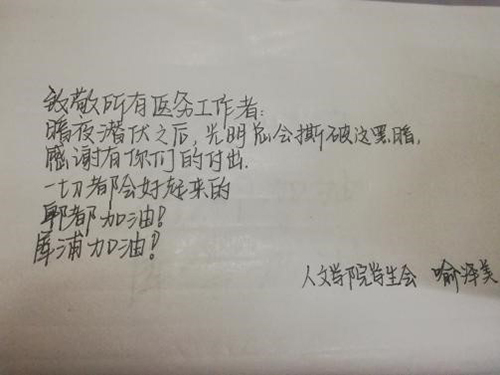 致敬所有医务工作者:
暗夜潜伏之后,光明总会撕破这黑暗,
感谢有你们的付出.
一切都会好起来的
郫都加油!
犀浦加油!
人文学院学生会 喻泽美